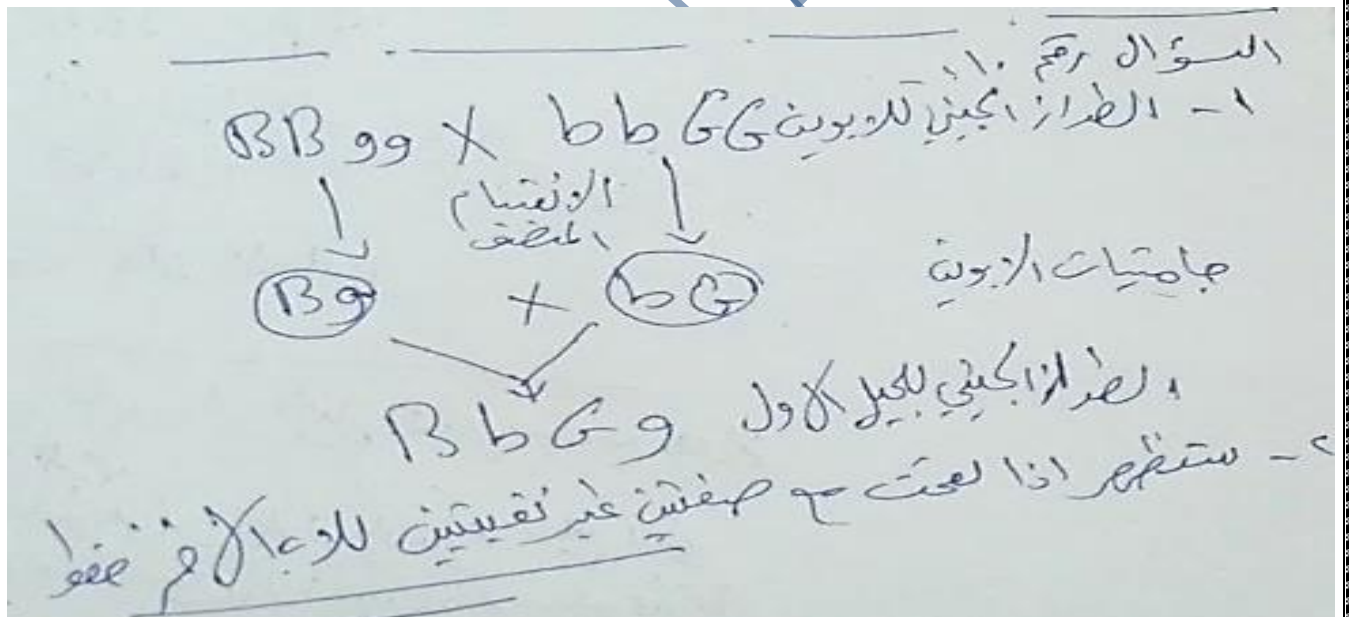 السؤال رقم ١٠:
١- الطراز الجيني للأبوين BBgg X bbGG
الانقسام
المنصف
جاميتات الأبوين Bg × bG
الطراز الجيني للجيل الأول BbGg
٢- ستظهر اذا لقحت مع صفتين غير نقيتين للأب الآخر فقط